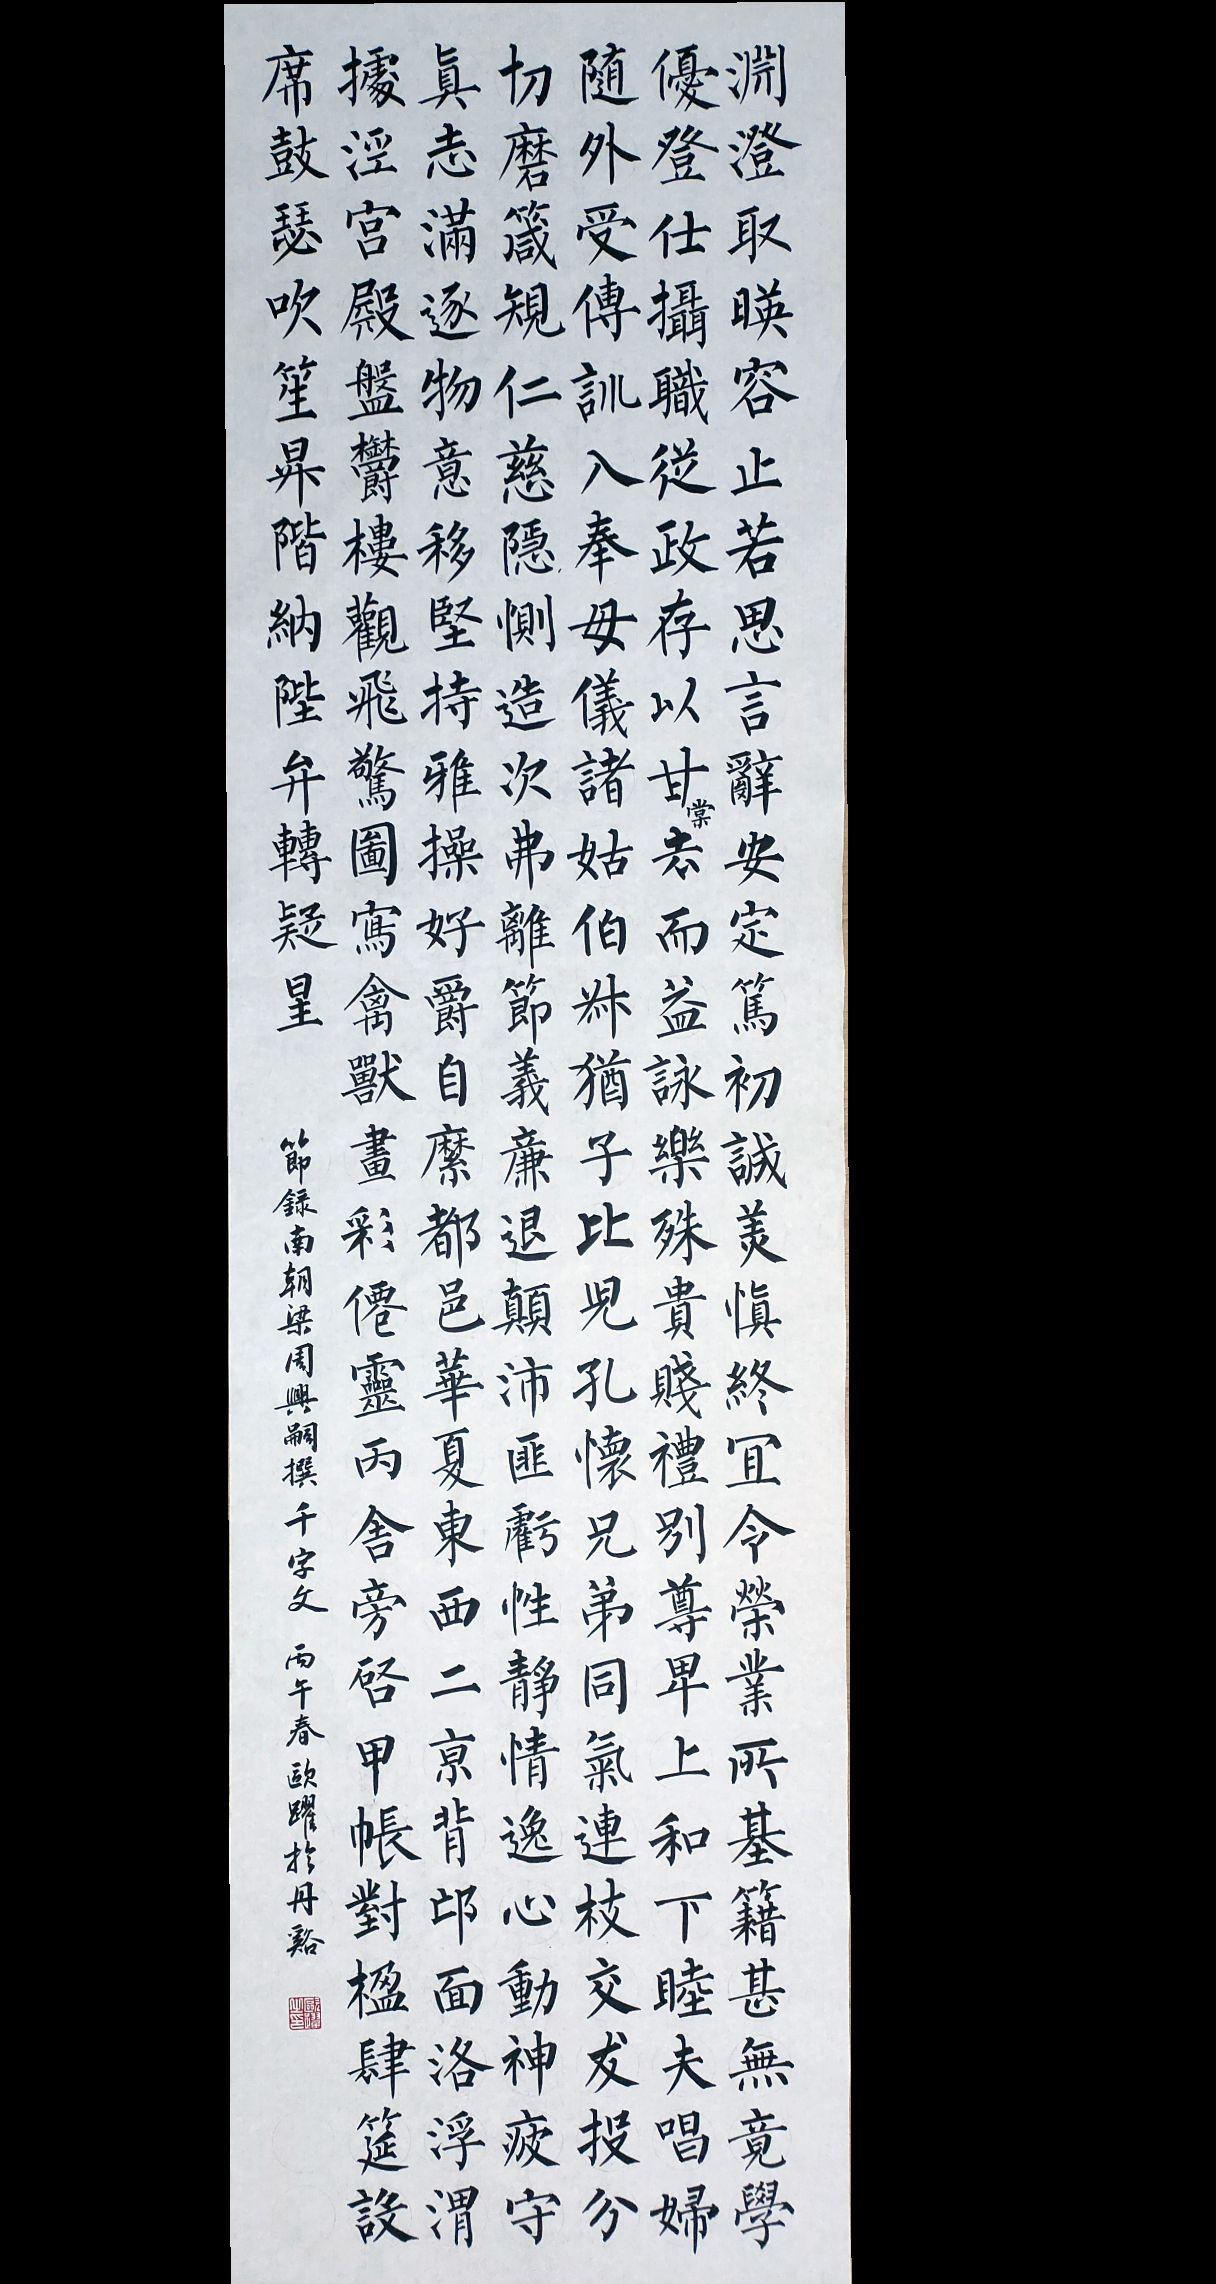 淵澄取暎容止若思言辭安定篤初誠羙慎終宜令榮業所基籍甚無竟學
優登仕攝職從政存以甘棠去而益詠樂殊貴賤禮別尊卑上和下睦夫唱婦
随外受傅訓入奉母儀諸姑伯叔猶子比兒孔懷兄弟同氣連枝交友投分
切磨箴規仁慈隱惻造次弗離節義廉退顛沛匪虧性靜情逸心動神疲守
真志滿逐物意移堅持雅操好爵自縻都邑華夏東西二京背邙面洛浮渭
據涇宮殿盤鬱樓觀飛驚圖寫禽獸畫彩僊靈丙舍旁啓甲帳對楹肆筵設
席鼓瑟吹笙昇階納陛弁轉疑星
節錄南朝梁周興嗣撰千字文 丙午春歐躍於丹谿